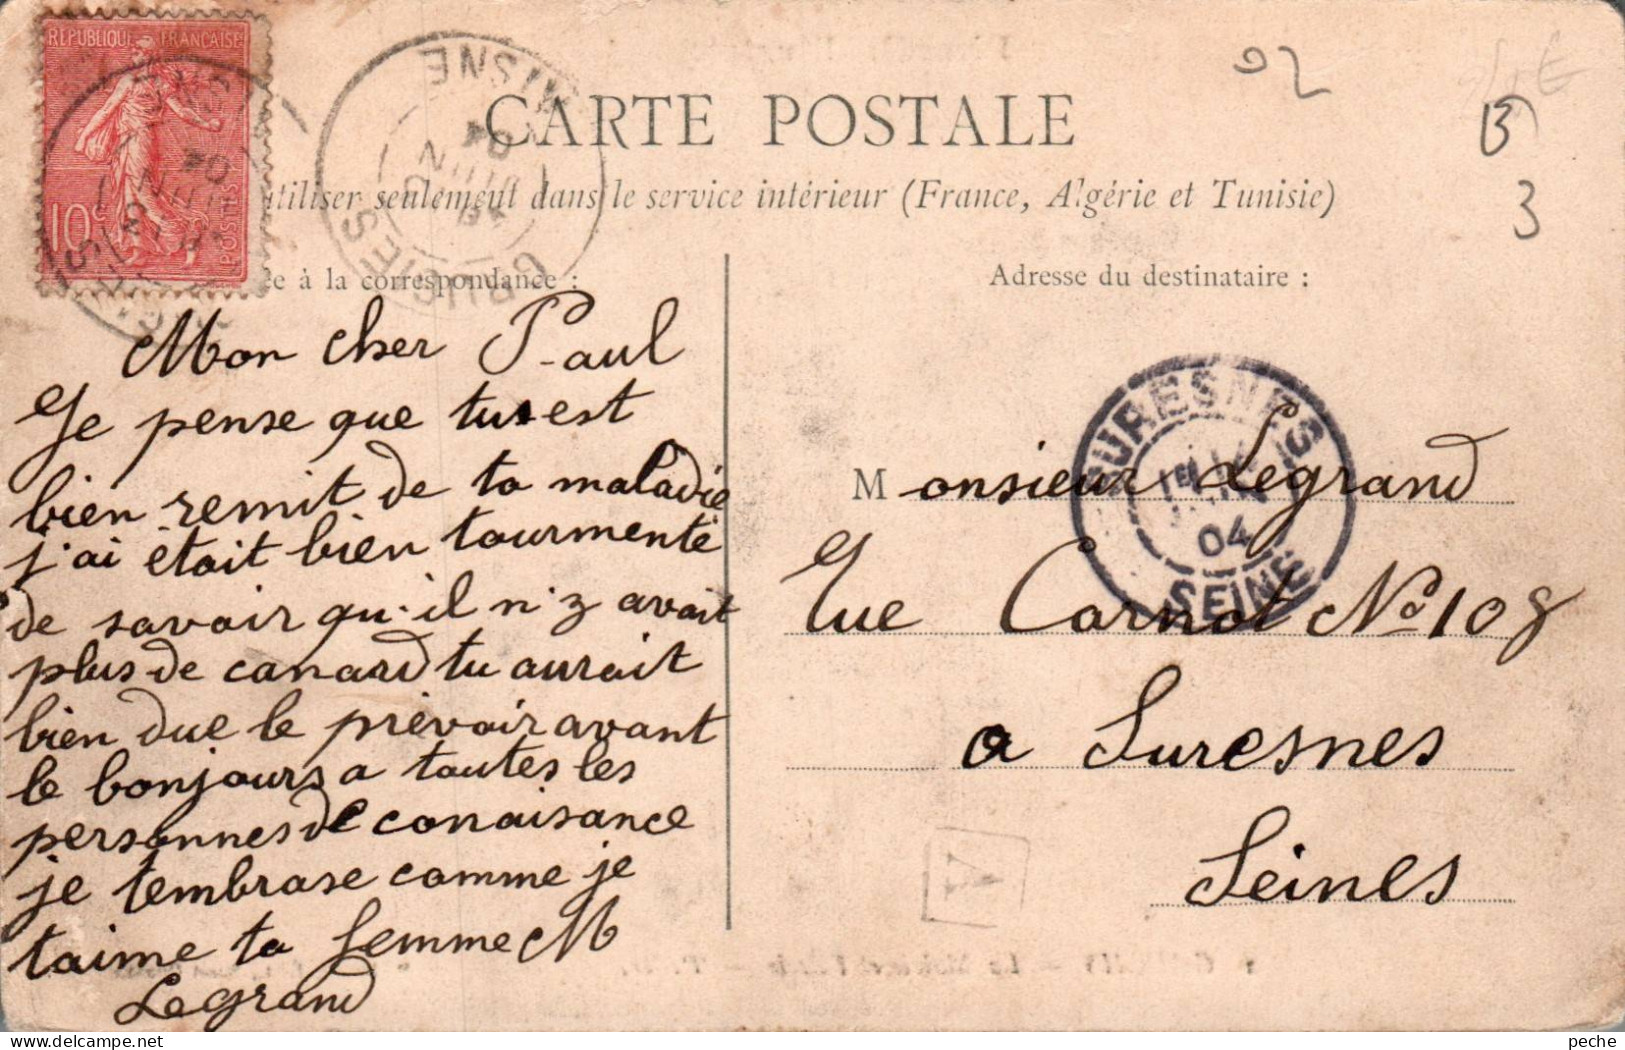 RÉPUBLIQUE FRANÇAISE
10c POSTES
AISNE
04
CARTE POSTALE
utiliser seulement dans le service intérieur (France, Algérie et Tunisie)
à la correspondance :
Mon cher Paul
Je pense que tu est
bien remit de ta maladie
j'ai etait bien tourmenté
de savoir qu'il n'z avait
plus de canard tu aurait
bien due le prévoir avant
le bonjours a toutes les
personnes de conaisance
je tembrase comme je
taime ta femme M
Legrand
Adresse du destinataire :
Monsieur Legrand
rue Carnot No 108
a Suresnes
Seines
SURESNES
04
SEINE
92
B
3
A
peche